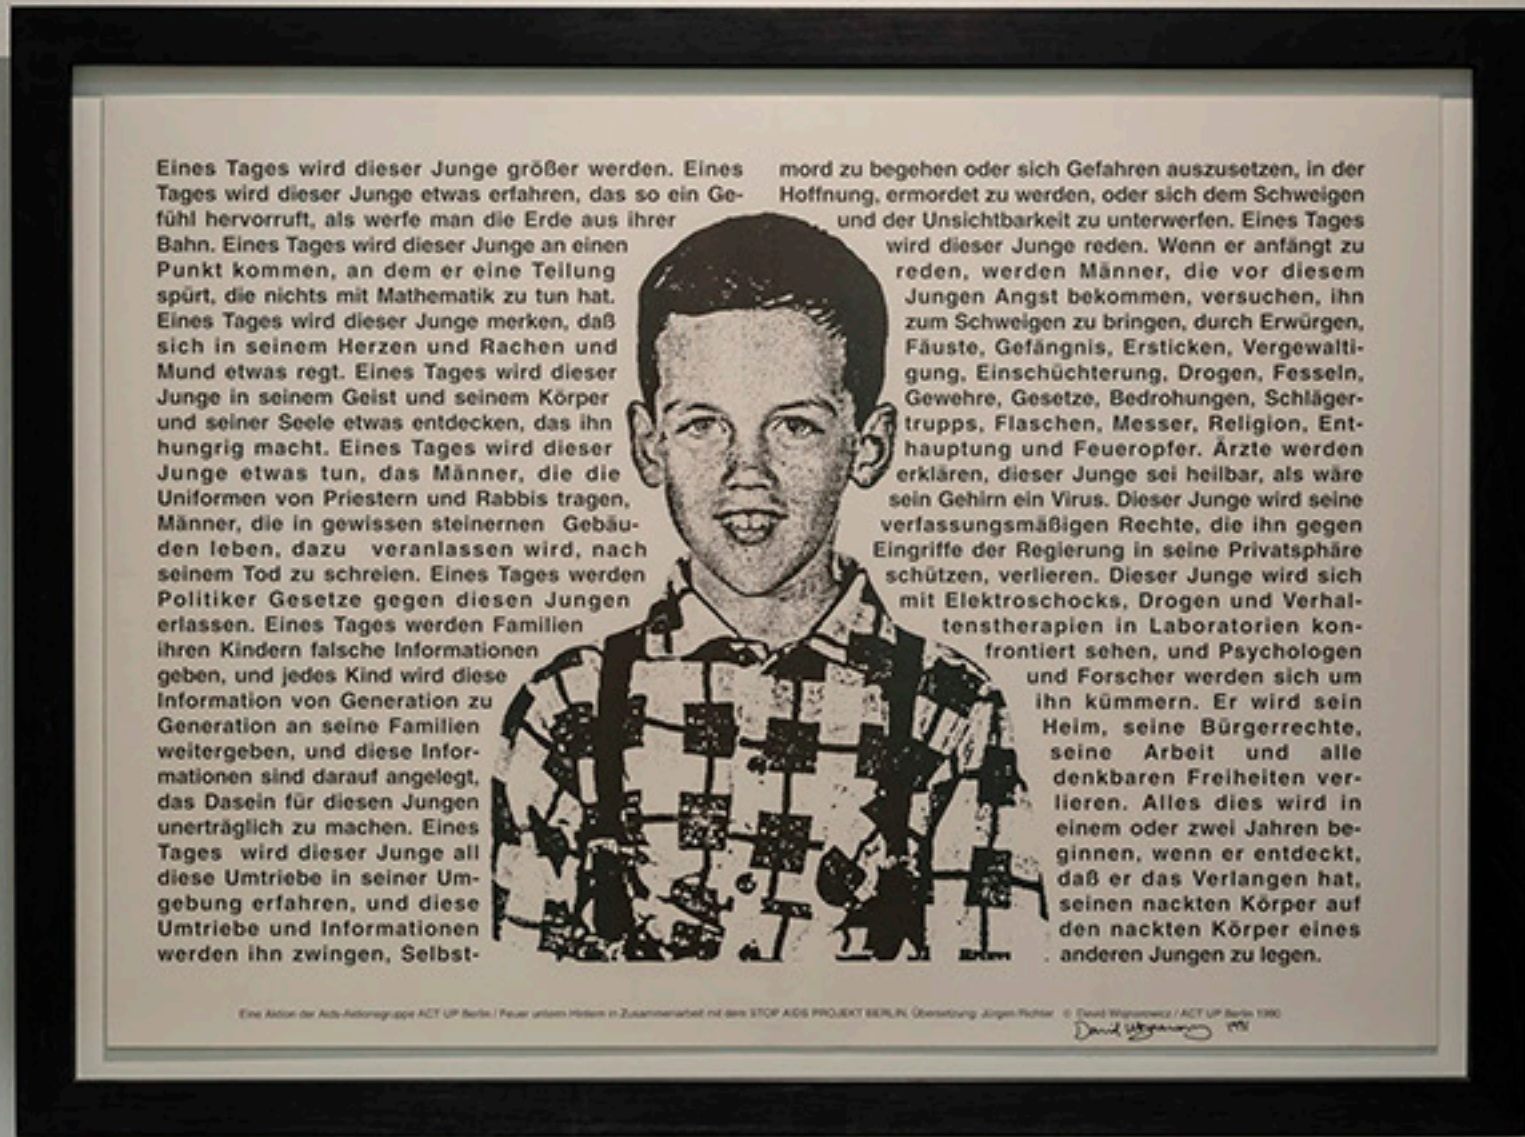 Eines Tages wird dieser Junge größer werden. Eines
Tages wird dieser Junge etwas erfahren, das so ein Ge-
fühl hervorruft, als werfe man die Erde aus ihrer
Bahn. Eines Tages wird dieser Junge an einen
Punkt kommen, an dem er eine Teilung
spürt, die nichts mit Mathematik zu tun hat.
Eines Tages wird dieser Junge merken, daß
sich in seinem Herzen und Rachen und
Mund etwas regt. Eines Tages wird dieser
Junge in seinem Geist und seinem Körper
und seiner Seele etwas entdecken, das ihn
hungrig macht. Eines Tages wird dieser
Junge etwas tun, das Männer, die die
Uniformen von Priestern und Rabbis tragen,
Männer, die in gewissen steinernen Gebäu-
den leben, dazu veranlassen wird, nach
seinem Tod zu schreien. Eines Tages werden
Politiker Gesetze gegen diesen Jungen
erlassen. Eines Tages werden Familien
ihren Kindern falsche Informationen
geben, und jedes Kind wird diese
Information von Generation zu
Generation an seine Familien
weitergeben, und diese Infor-
mationen sind darauf angelegt,
das Dasein für diesen Jungen
unerträglich zu machen. Eines
Tages wird dieser Junge all
diese Umtriebe in seiner Um-
gebung erfahren, und diese
Umtriebe und Informationen
werden ihn zwingen, Selbst-
mord zu begehen oder sich Gefahren auszusetzen, in der
Hoffnung, ermordet zu werden, oder sich dem Schweigen
und der Unsichtbarkeit zu unterwerfen. Eines Tages
wird dieser Junge reden. Wenn er anfängt zu
reden, werden Männer, die vor diesem
Jungen Angst bekommen, versuchen, ihn
zum Schweigen zu bringen, durch Erwürgen,
Fäuste, Gefängnis, Ersticken, Vergewalti-
gung, Einschüchterung, Drogen, Fesseln,
Gewehre, Gesetze, Bedrohungen, Schläger-
trupps, Flaschen, Messer, Religion, Ent-
hauptung und Feueropfer. Ärzte werden
erklären, dieser Junge sei heilbar, als wäre
sein Gehirn ein Virus. Dieser Junge wird seine
verfassungsmäßigen Rechte, die ihn gegen
Eingriffe der Regierung in seine Privatsphäre
schützen, verlieren. Dieser Junge wird sich
mit Elektroschocks, Drogen und Verhal-
tenstherapien in Laboratorien kon-
frontiert sehen, und Psychologen
und Forscher werden sich um
ihn kümmern. Er wird sein
Heim, seine Bürgerrechte,
seine Arbeit und alle
denkbaren Freiheiten ver-
lieren. Alles dies wird in
einem oder zwei Jahren be-
ginnen, wenn er entdeckt,
daß er das Verlangen hat,
seinen nackten Körper auf
den nackten Körper eines
anderen Jungen zu legen.
Eine Aktion der Aids-Aktionsgruppe ACT UP Berlin / Feuer unterm Hintern in Zusammenarbeit mit dem STOP AIDS PROJEKT BERLIN. Übersetzung: Jürgen Richter © David Wojnarowicz / ACT UP Berlin 1990
David Wojnarowicz 1991